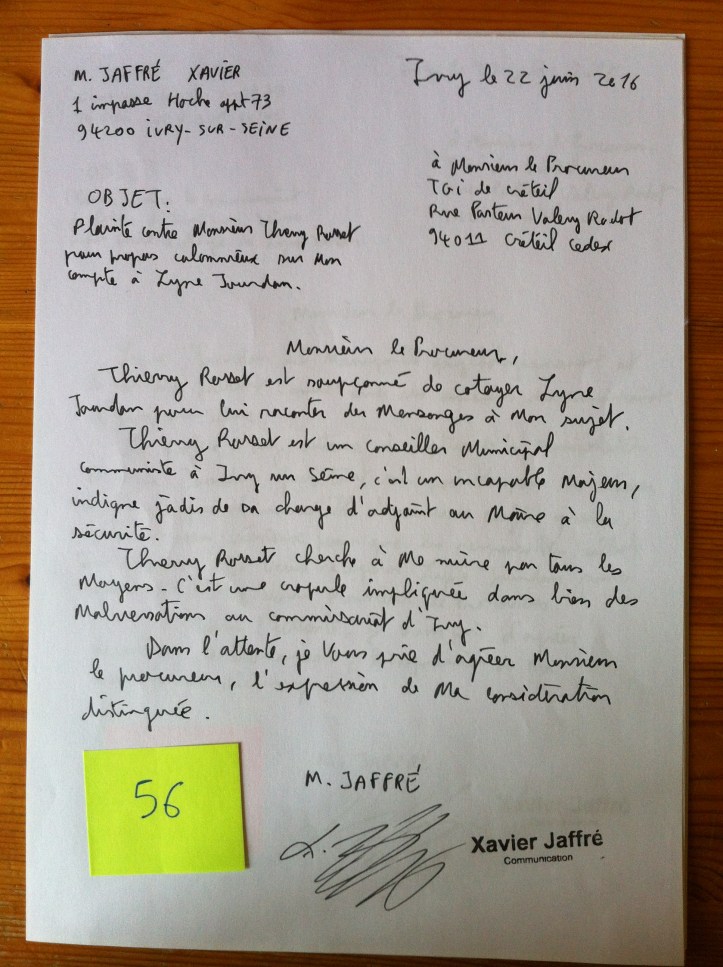 M. JAFFRÉ XAVIER
1 impasse Hoche appt 73
94200 IVRY-SUR-SEINE
Ivry le 22 juin 2016
à Monsieur le Procureur
TGI de Créteil
Rue Pasteur Valery Radot
94011 Créteil Cedex
OBJET.
Plainte contre Monsieur Thierry Rosset
pour propos calomnieux sur Mon
compte à Lyne Jourdan.
Monsieur le Procureur,
Thierry Rosset est soupçonné de cotoyer Lyne
Jourdan pour lui raconter des Mensonges à Mon sujet.
Thierry Rosset est un conseiller Municipal
communiste à Ivry sur Seine, c'est un incapable Majeur,
indigne jadis de sa charge d'adjoint au Maire à la
sécurité.
Thierry Rosset cherche à Me nuire par tous les
Moyens - C'est une crapule impliquée dans bien des
Malversations au commissariat d'Ivry.
Dans l'attente, je Vous prie d'agréer Monsieur
le procureur, l'expression de Ma considération
distinguée.
56
M. JAFFRÉ
Xavier Jaffré
Communication